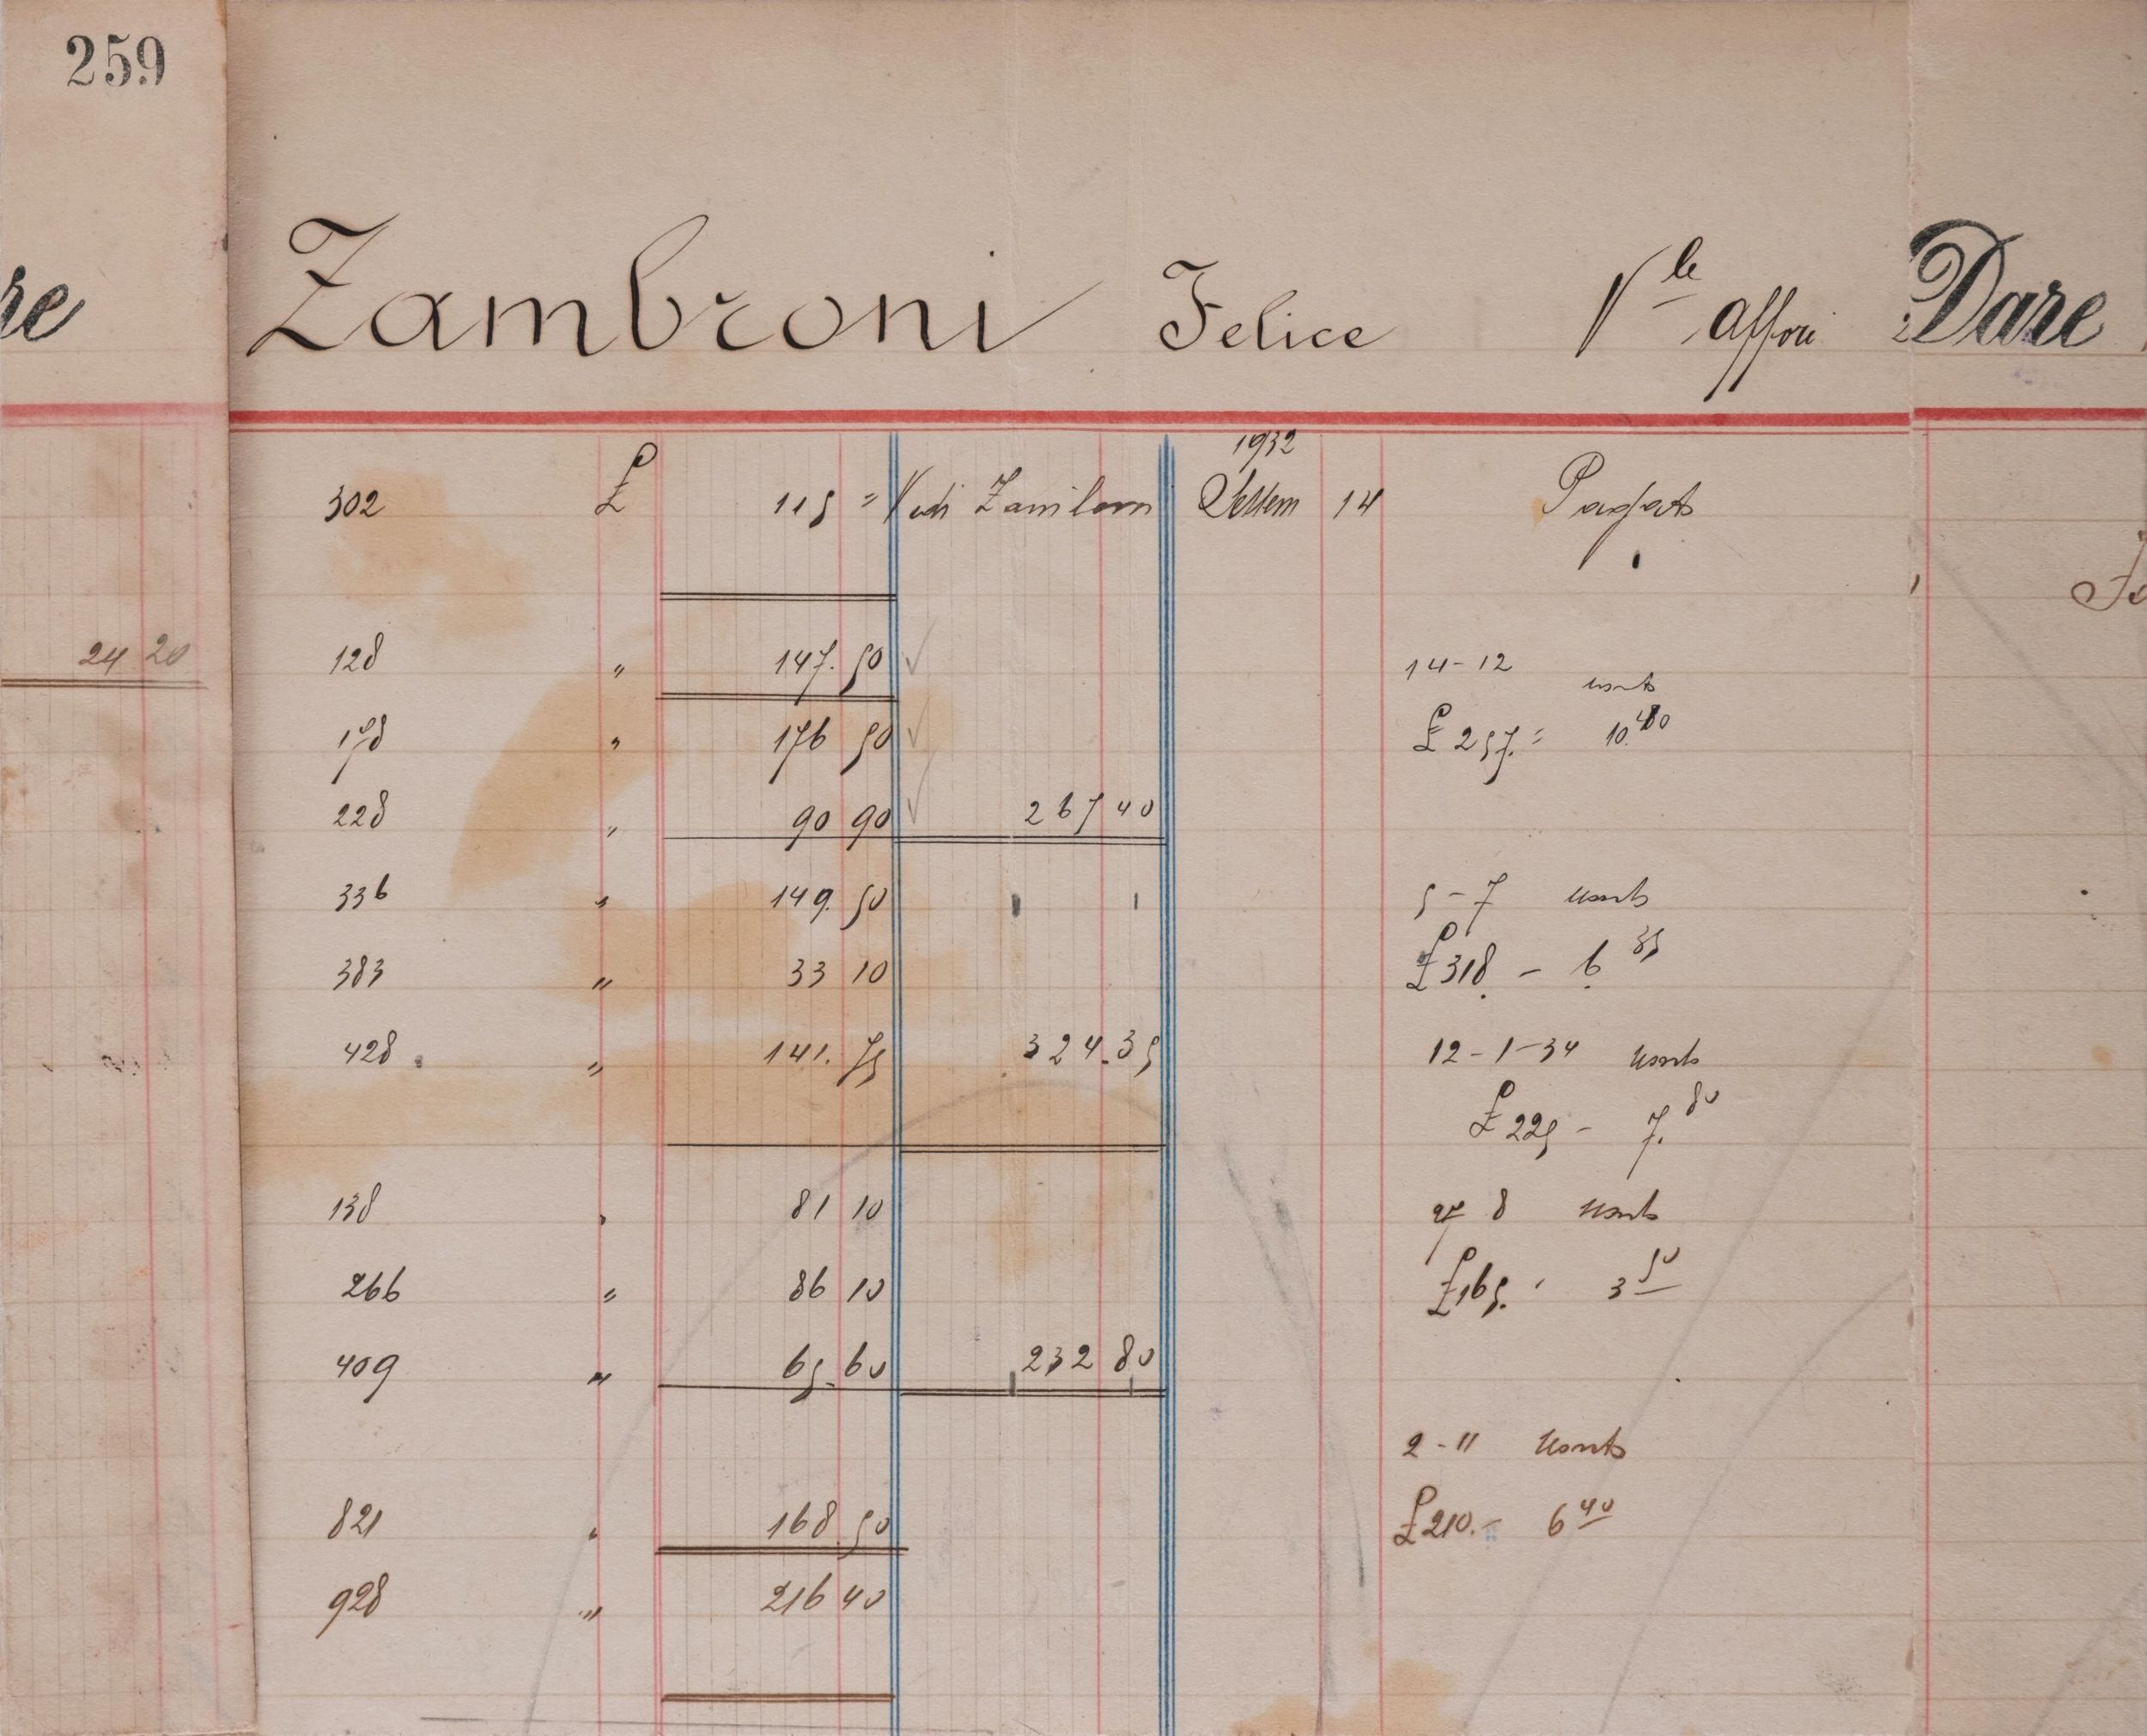 259
re Zambroni Felice Vle Affori Dare
1932
302 £ 115 = Vedi Settem 14 Pagato
24 20 128 " 147.50 ✓ 14-12
178 " 176 50 ✓ £ 257.= 10.40
228 " 90 90 ✓ 267 40
336 " 149.50 5-7
383 " 33 10 £318 - 6. 35
428 " 141.75 324.35 12-1-34
£ 225 - 7.80
138 " 81 10 27 8
266 " 86 10 £165. 3 50
409 " 65.60 232 80
2-11
821 " 168 50 £210.- 6 40
928 " 216 40